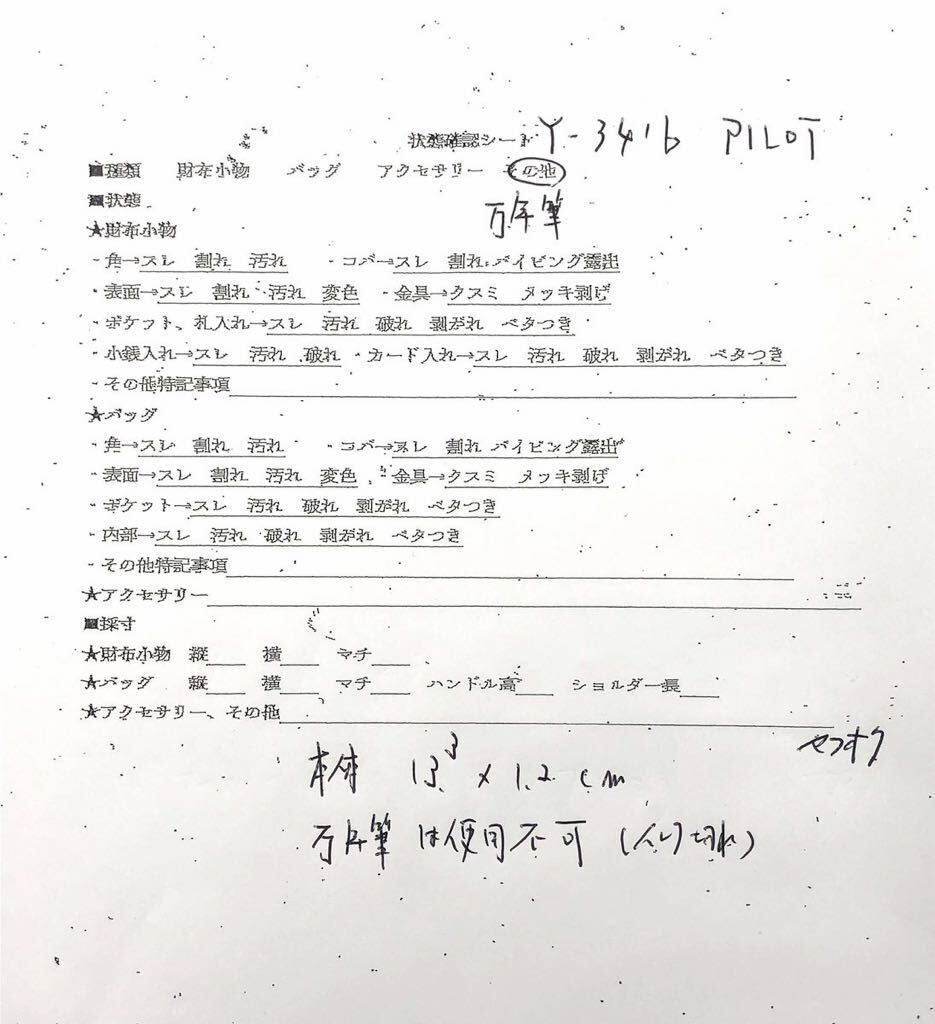 状態確認シート Y-3416 PILOT
■種類 財布小物 バッグ アクセサリー その他
万年筆
■状態
★財布小物
・角→スレ 割れ 汚れ ・コバ→スレ 割れ パイピング露出
・表面→スレ 割れ 汚れ 変色 ・金具→クスミ メッキ剥げ
・ポケット、札入れ→スレ 汚れ 破れ 剥がれ ベタつき
・小銭入れ→スレ 汚れ 破れ ・カード入れ→スレ 汚れ 破れ 剥がれ ベタつき
・その他特記事項
★バッグ
・角→スレ 割れ 汚れ ・コバ→スレ 割れ パイピング露出
・表面→スレ 割れ 汚れ 変色 ・金具→クスミ メッキ剥げ
・ポケット→スレ 汚れ 破れ 剥がれ ベタつき
・内部→スレ 汚れ 破れ 剥がれ ベタつき
・その他特記事項
★アクセサリー
■採寸
★財布小物 縦 横 マチ
★バッグ 縦 横 マチ ハンドル高 ショルダー長
★アクセサリー、その他
ヤフオク
本体 13.3 x 1.2 cm
万年筆は使用不可 (インク切れ)